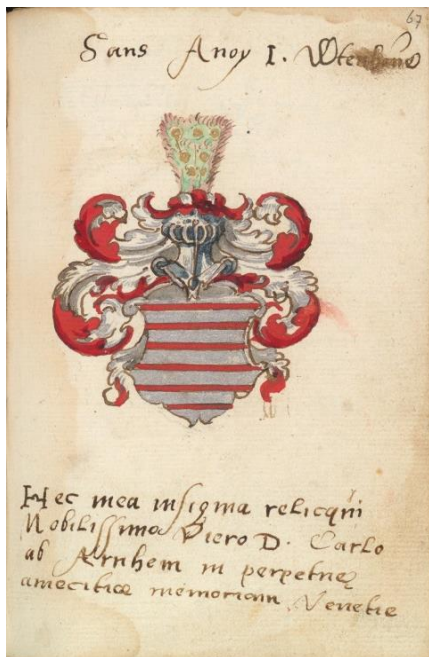 67
Sans Anoy I. Wtenhane
Hec mea insignia relicqui
Nobilissimo Viero D. Carlo
ab Arnhem in perpetuę
amecitiæ memoriam Venetie